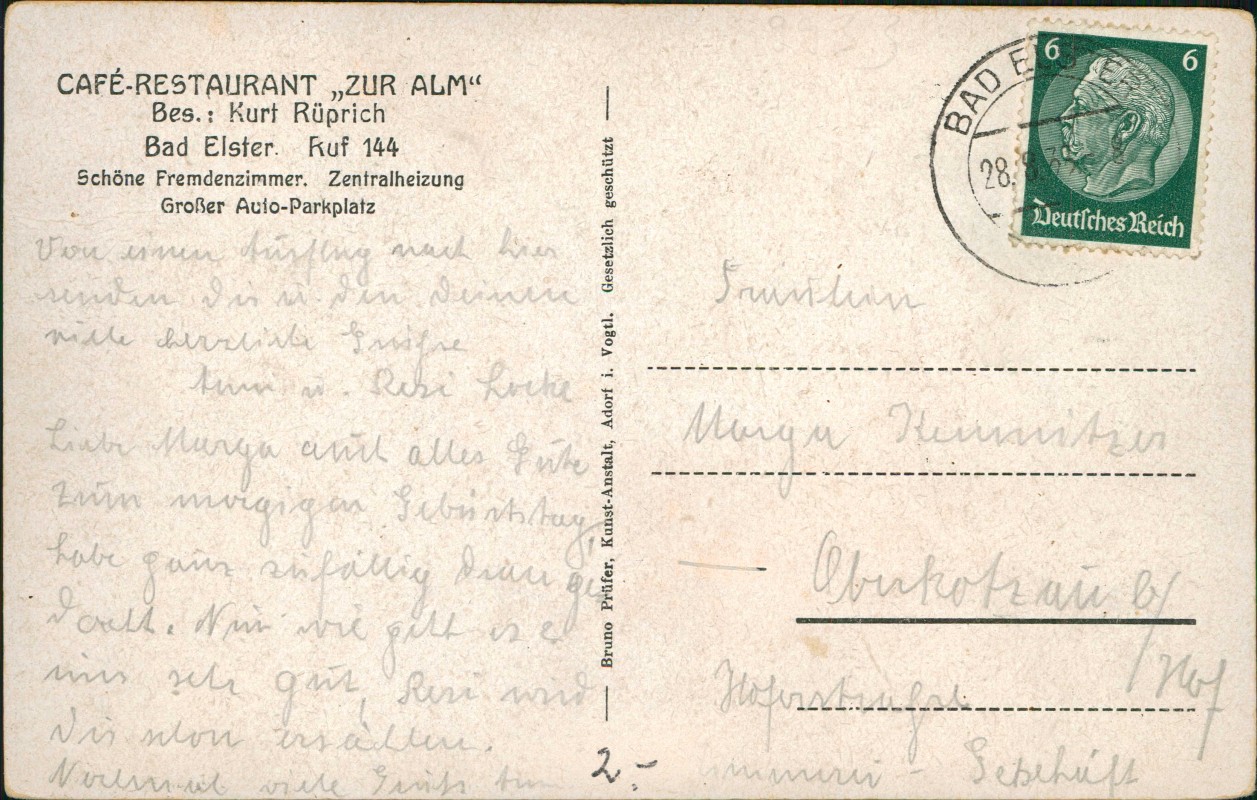 CAFÉ-RESTAURANT „ZUR ALM“
Bes.: Kurt Rüprich
Bad Elster. Ruf 144
Schöne Fremdenzimmer. Zentralheizung
Großer Auto-Parkplatz
Von einen Ausflug nach hier
senden Dir u. den Deinen
viele herzliche Grüsse
u. Resi
Liebe Marga auch alles Gute
zum morgigen Geburtstag,
habe ganz zufällig dran ge
dacht. Nun wie geht es
mir sehr gut, Resi wird
Dir schon erzählen.
Nochmal viele Grüße
Bruno Prüfer, Kunst-Anstalt, Adorf i. Vogtl. Gesetzlich geschützt
2.-
BAD ELSTER
28. 8.
6 6
Deutsches Reich
Fräulein
Marga
Oberkotzau b/
Hof
Hoferstraße
Geschäft